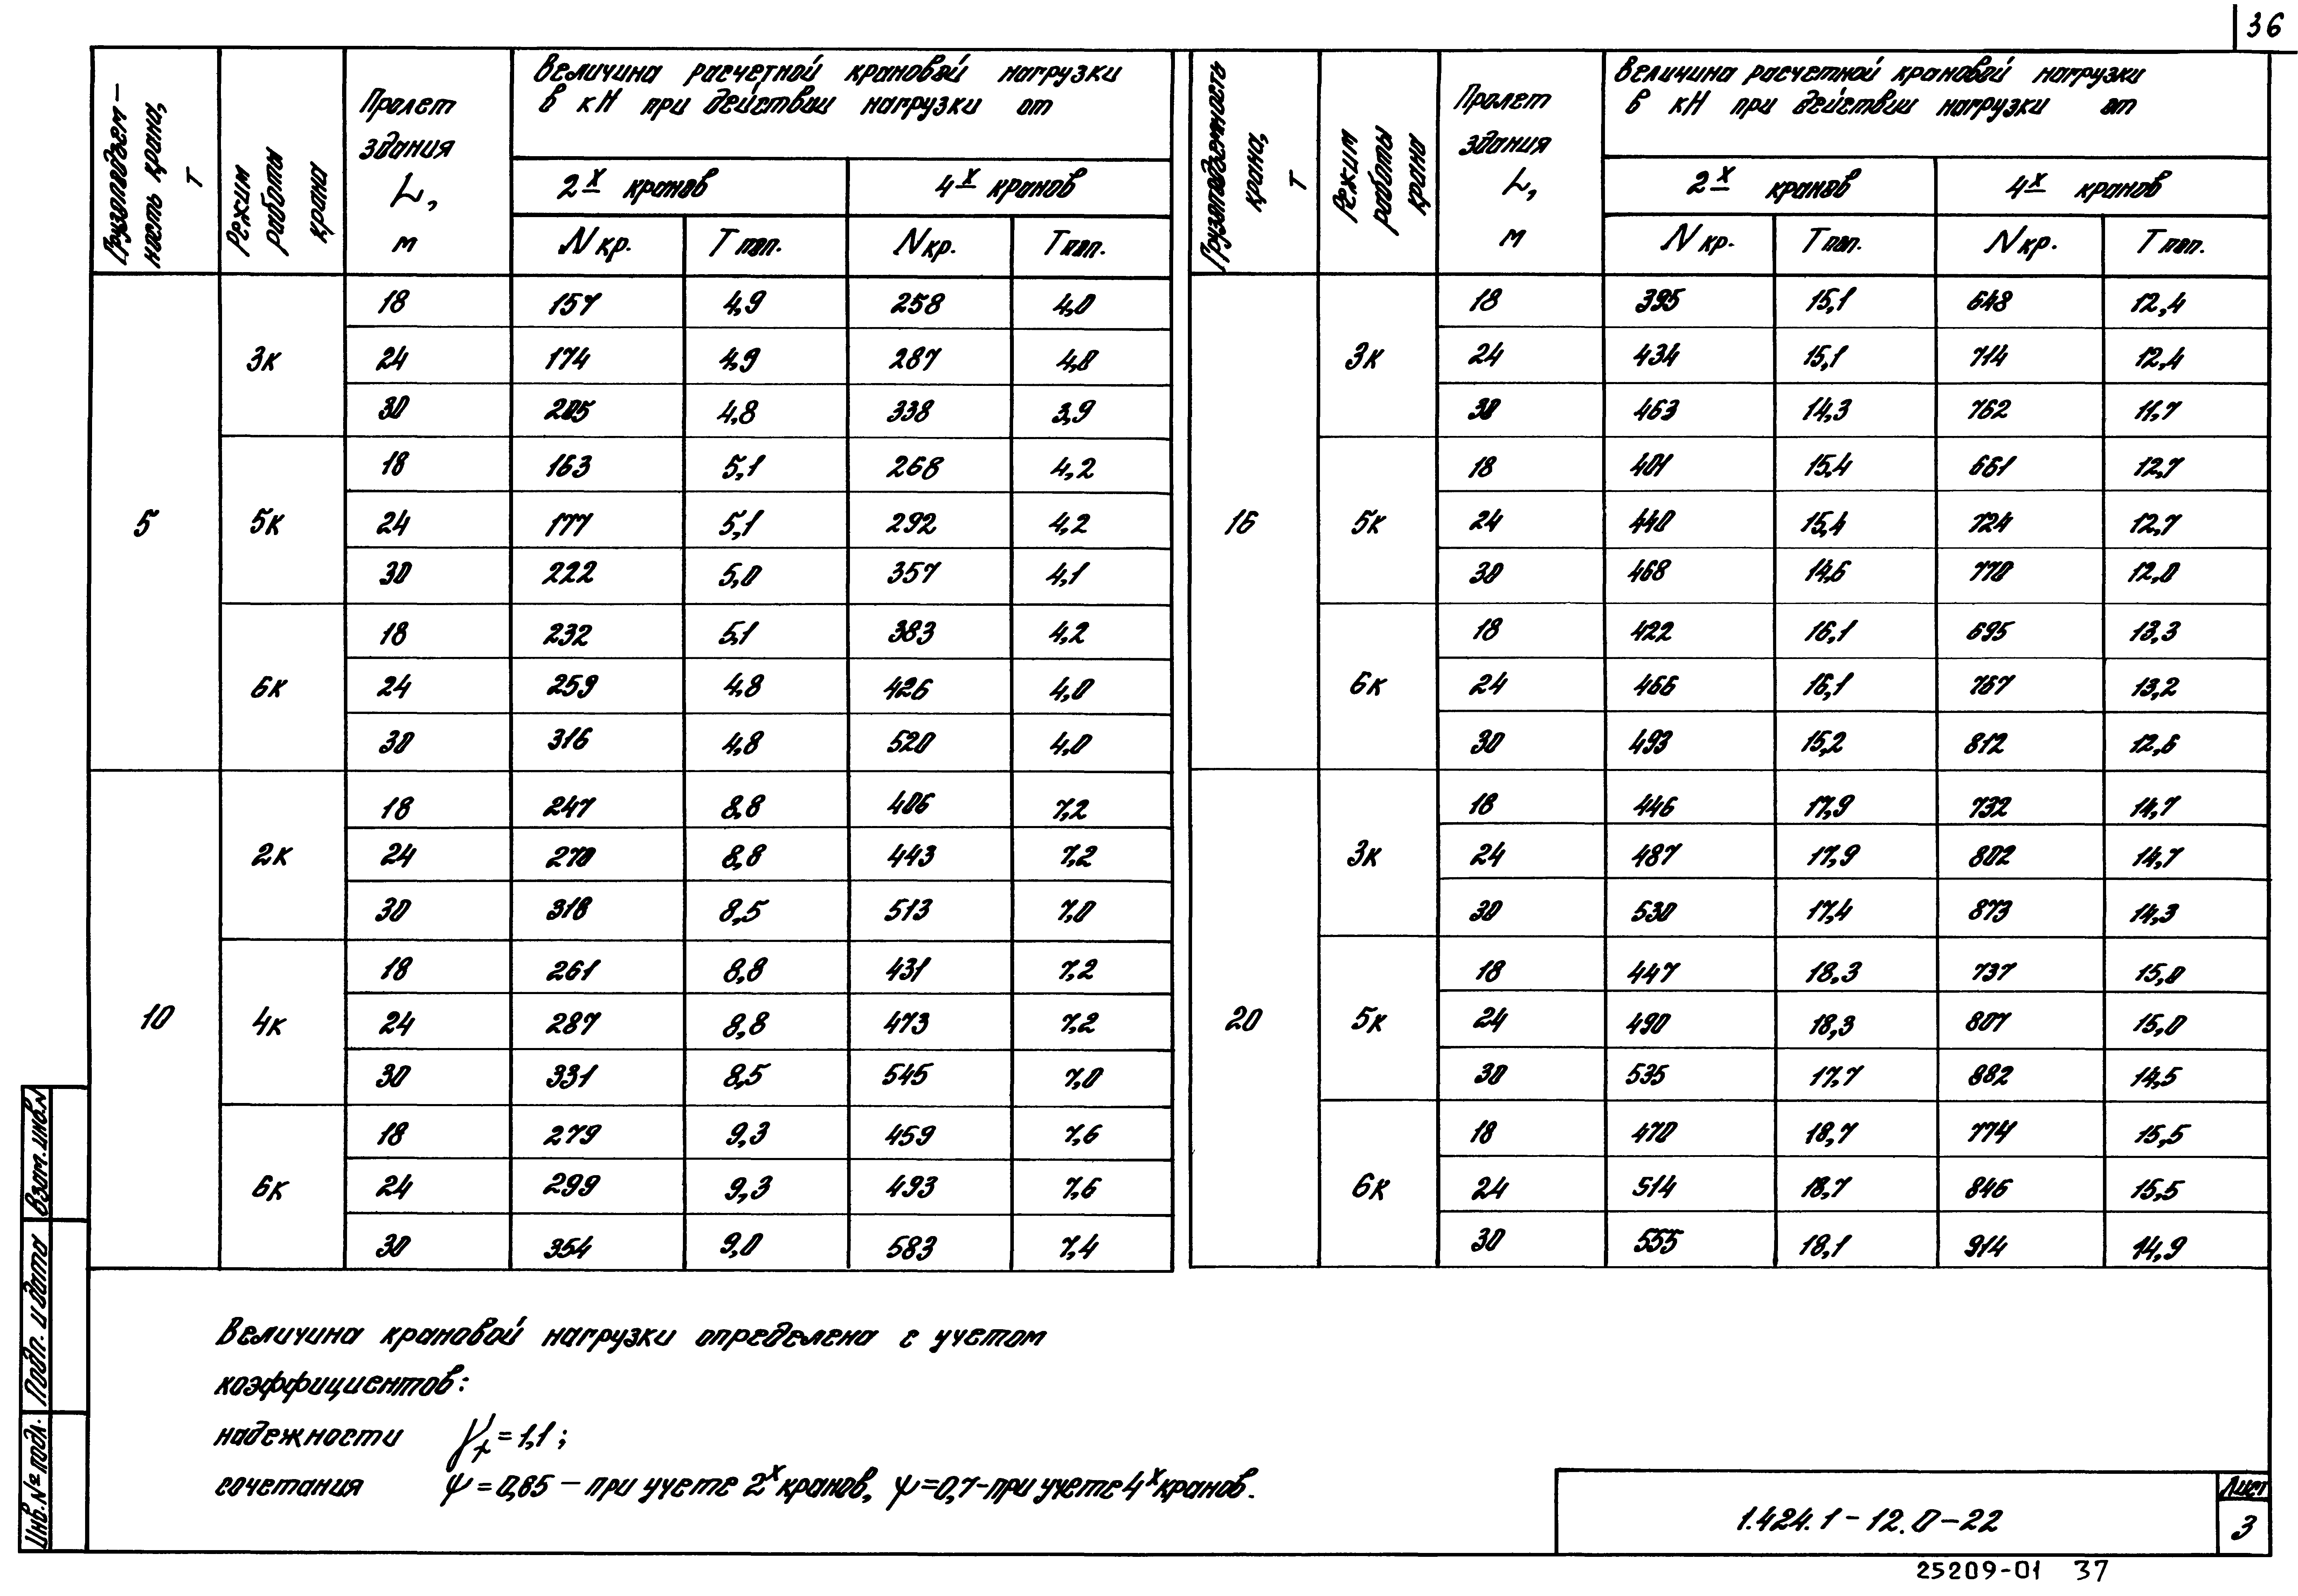 36
Грузоподъем-
ность крана,
т
Режим
работы
крана
Пролет
здания
L,
м
Величина расчетной крановой нагрузки
в кН при действии нагрузки от
2х кранов 4х кранов
Nкр. Tпоп. Nкр. Tпоп.
5
3к
18 157 4,9 258 4,0
24 174 4,9 287 4,0
30 205 4,8 338 3,9
5к
18 163 5,1 268 4,2
24 177 5,1 292 4,2
30 222 5,0 357 4,1
6к
18 232 5,1 383 4,2
24 259 4,8 426 4,0
30 316 4,8 520 4,0
10
2к
18 247 8,8 406 7,2
24 270 8,8 443 7,2
30 318 8,5 513 7,0
4к
18 261 8,8 431 7,2
24 287 8,8 473 7,2
30 331 8,5 545 7,0
6к
18 279 9,3 459 7,6
24 299 9,3 493 7,6
30 354 9,0 583 7,4
Грузоподъемность
крана,
т
Режим
работы
крана
Пролет
здания
L,
м
Величина расчетной крановой нагрузки
в кН при действии нагрузки от
2х кранов 4х кранов
Nкр. Tпоп. Nкр. Tпоп.
16
3к
18 395 15,1 648 12,4
24 434 15,1 714 12,4
30 463 14,3 762 11,7
5к
18 401 15,4 661 12,7
24 440 15,4 724 12,7
30 468 14,6 770 12,0
6к
18 422 16,1 695 13,3
24 466 16,1 767 13,2
30 493 15,2 812 12,6
20
3к
18 446 17,9 732 14,7
24 487 17,9 802 14,7
30 530 17,4 873 14,3
5к
18 447 18,3 737 15,0
24 490 18,3 807 15,0
30 535 17,7 882 14,5
6к
18 470 18,7 774 15,5
24 514 18,7 846 15,5
30 555 18,1 914 14,9
Величина крановой нагрузки определена с учетом
коэффициентов:
надежности γf = 1,1;
сочетания ψ = 0,85 - при учете 2х кранов, ψ = 0,7 - при учете 4х кранов.
Взам. инв. N
Подп. и дата
Инв. № подл.
1.424.1-12.0-22
Лист
3
25209-01 37